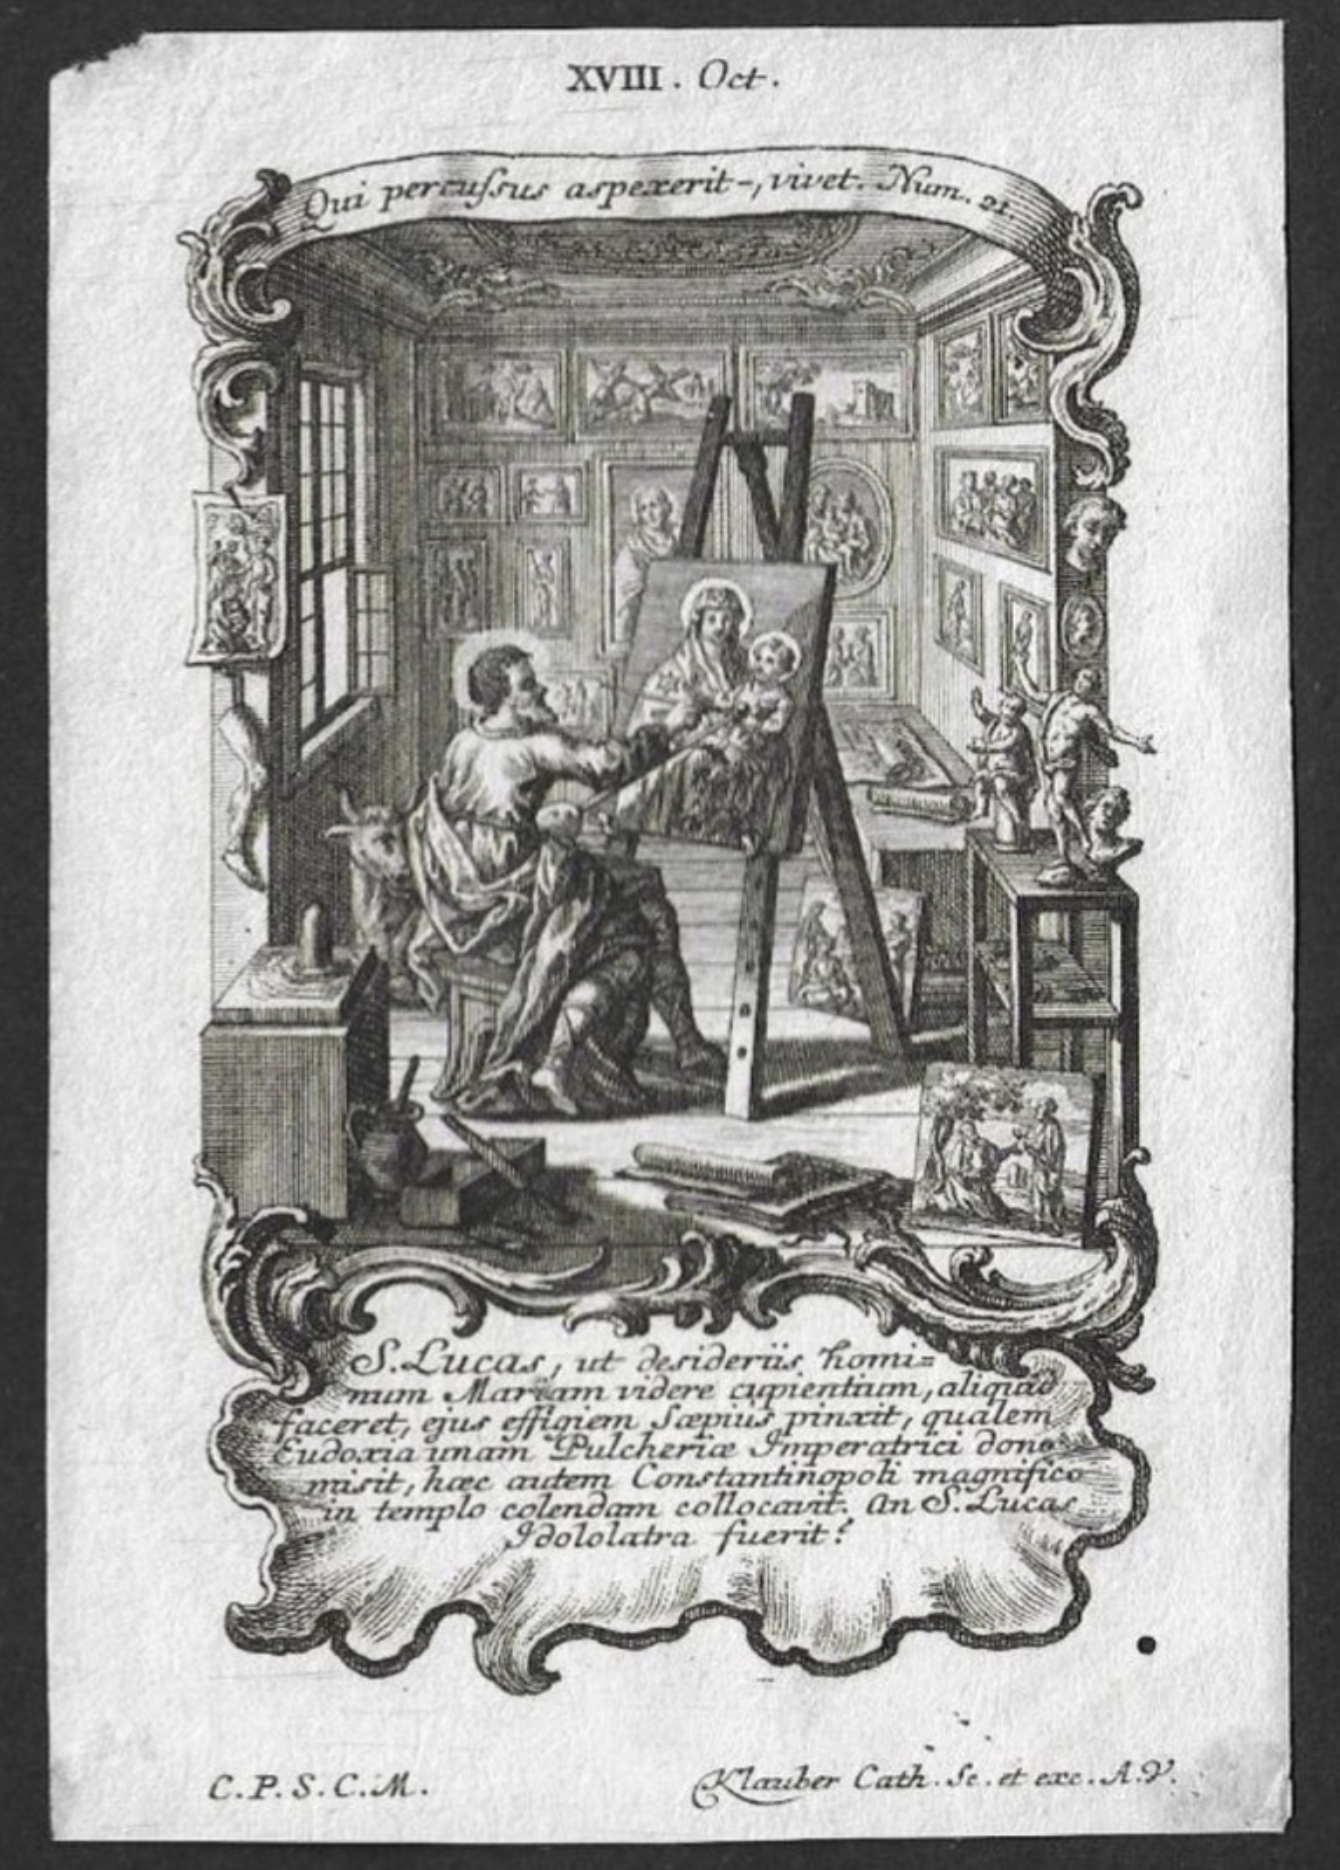 XVIII. Oct.
Qui percuſsus aspexerit-, vivet. Num. 21.
S. Lucas, ut desideriis homi=
num Mariam videre cupientium, aliquid
faceret, ejus effigiem sæpiùs pinxit, qualem
Eudoxia unam Pulcheriæ Imperatrici dono
misit, hæc autem Constantinopoli magnifico
in templo colendam collocavit. An S. Lucas
Idololatra fuerit?
C. P. S. C. M.
Klauber Cath. Sc. et exc. A. V.